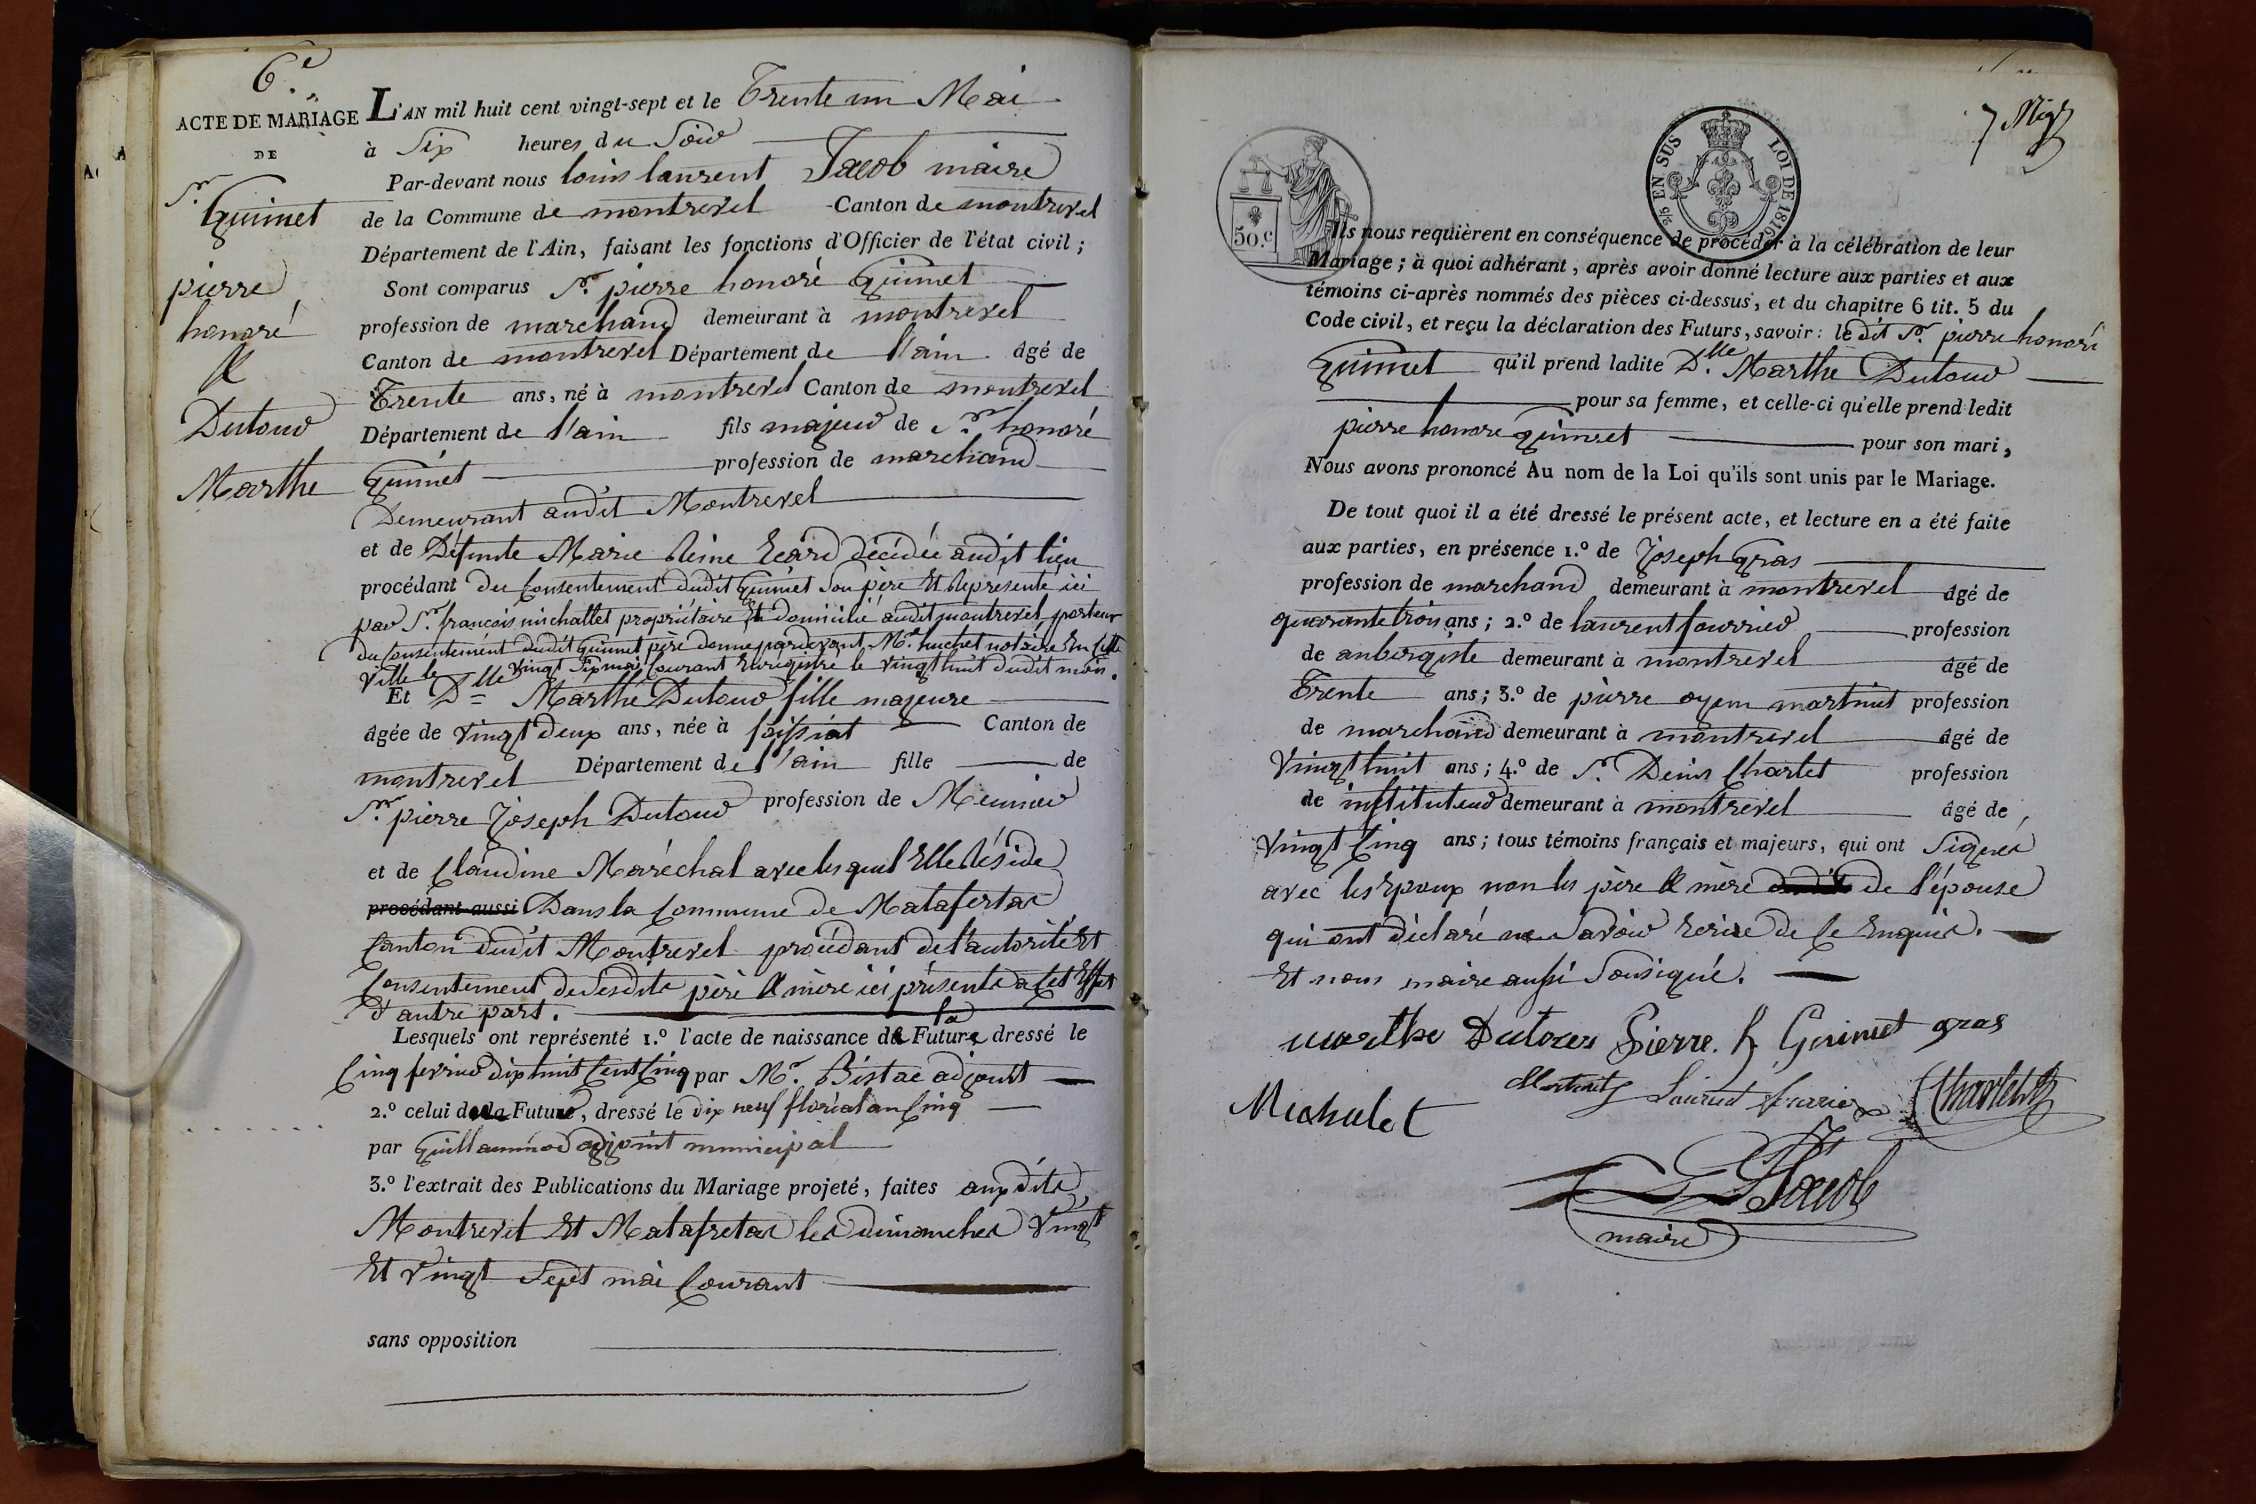 6.e
ACTE DE MARIAGE
DE
Sr.
Guimet
pierre
honoré
&
Dutour
Marthe
L'AN mil huit cent vingt-sept et le Trente un Mai
à Six heures du Soir
Par-devant nous louis laurent Jacob maire
de la Commune de montrevel Canton de montrevel
Département de l'Ain, faisant les fonctions d'Officier de l'état civil ;
Sont comparus Sr. pierre honoré Guimet
profession de marchand demeurant à montrevel
Canton de montrevel Département de l'ain âgé de
Trente ans, né à montrevel Canton de montrevel
Département de l'ain fils majeur de Sr. honoré
Guimet profession de marchand
Demeurant audit Montrevel
et de Défunte Marie Reine décédée audit lieu
procédant du Consentement dudit Guimet Son père Et Représenté ici
par Sr. francois michallet propriétaire Et domicilié audit montrevel, porteur
du Consentement dudit Guimet père donné pardevant Me. huchet notaire En Cette
Ville le vingt Six mai Courant Enregistré le vingt huit dudit mois.
Et Dlle Marthe Dutour fille majeure
âgée de vingt deux ans, née à foissiat Canton de
montrevel Département de l'ain fille de
Sr. pierre Joseph Dutour profession de Meunier
et de Claudine Maréchal avec lesquel Elle Réside
procédant aussi Dans la Commune de Malafertas
Canton dudit Montrevel procédant de l'autorité Et
Consentement de Sesdits père & mère ici présents a Cet Effet
d'autre part.
Lesquels ont représenté 1.º l'acte de naissance de la Future dressé le
Cinq fevrier dix huit Cent Cinq par Mr. Bistac adjoint
2.º celui de la Future, dressé le dix neuf floréal an Cinq
par Guillaumod adjoint municipal
3.º l'extrait des Publications du Mariage projeté, faites auxdits
Montrevel Et Malafretas les dimanches Vingt
Et Vingt Sept mai Courant
sans opposition
50.c
2/5 EN SUS
LOI DE 1816
Ils nous requièrent en conséquence de procéder à la célébration de leur
Mariage ; à quoi adhérant, après avoir donné lecture aux parties et aux
témoins ci-après nommés des pièces ci-dessus, et du chapitre 6 tit. 5 du
Code civil, et reçu la déclaration des Futurs, savoir : le dit Sr. pierre honoré
Guimet qu'il prend ladite Dlle. Marthe Dutour
pour sa femme, et celle-ci qu'elle prend ledit
pierre honore guimet pour son mari,
Nous avons prononcé Au nom de la Loi qu'ils sont unis par le Mariage.
De tout quoi il a été dressé le présent acte, et lecture en a été faite
aux parties, en présence 1.º de Joseph Gras
profession de marchand demeurant à montrevel âgé de
quarante trois ans ; 2.º de laurent fourrier profession
de aubergiste demeurant à montrevel âgé de
Trente ans ; 3.º de pierre oyen martinet profession
de marchand demeurant à montrevel âgé de
Vingt huit ans ; 4.º de Sr. Denis Charlet profession
de instituteur demeurant à montrevel âgé de
Vingt Cinq ans ; tous témoins français et majeurs, qui ont Signés
avec les Epoux non les père & mère de l'épouse
qui ont déclaré ne Savoir Ecrire de Ce Enquis.
Et nous maire aussi Soussigné.
marthe Dutour Pierre. h Guimet gras
Michalet Martinet Charlet
Jacob
maire